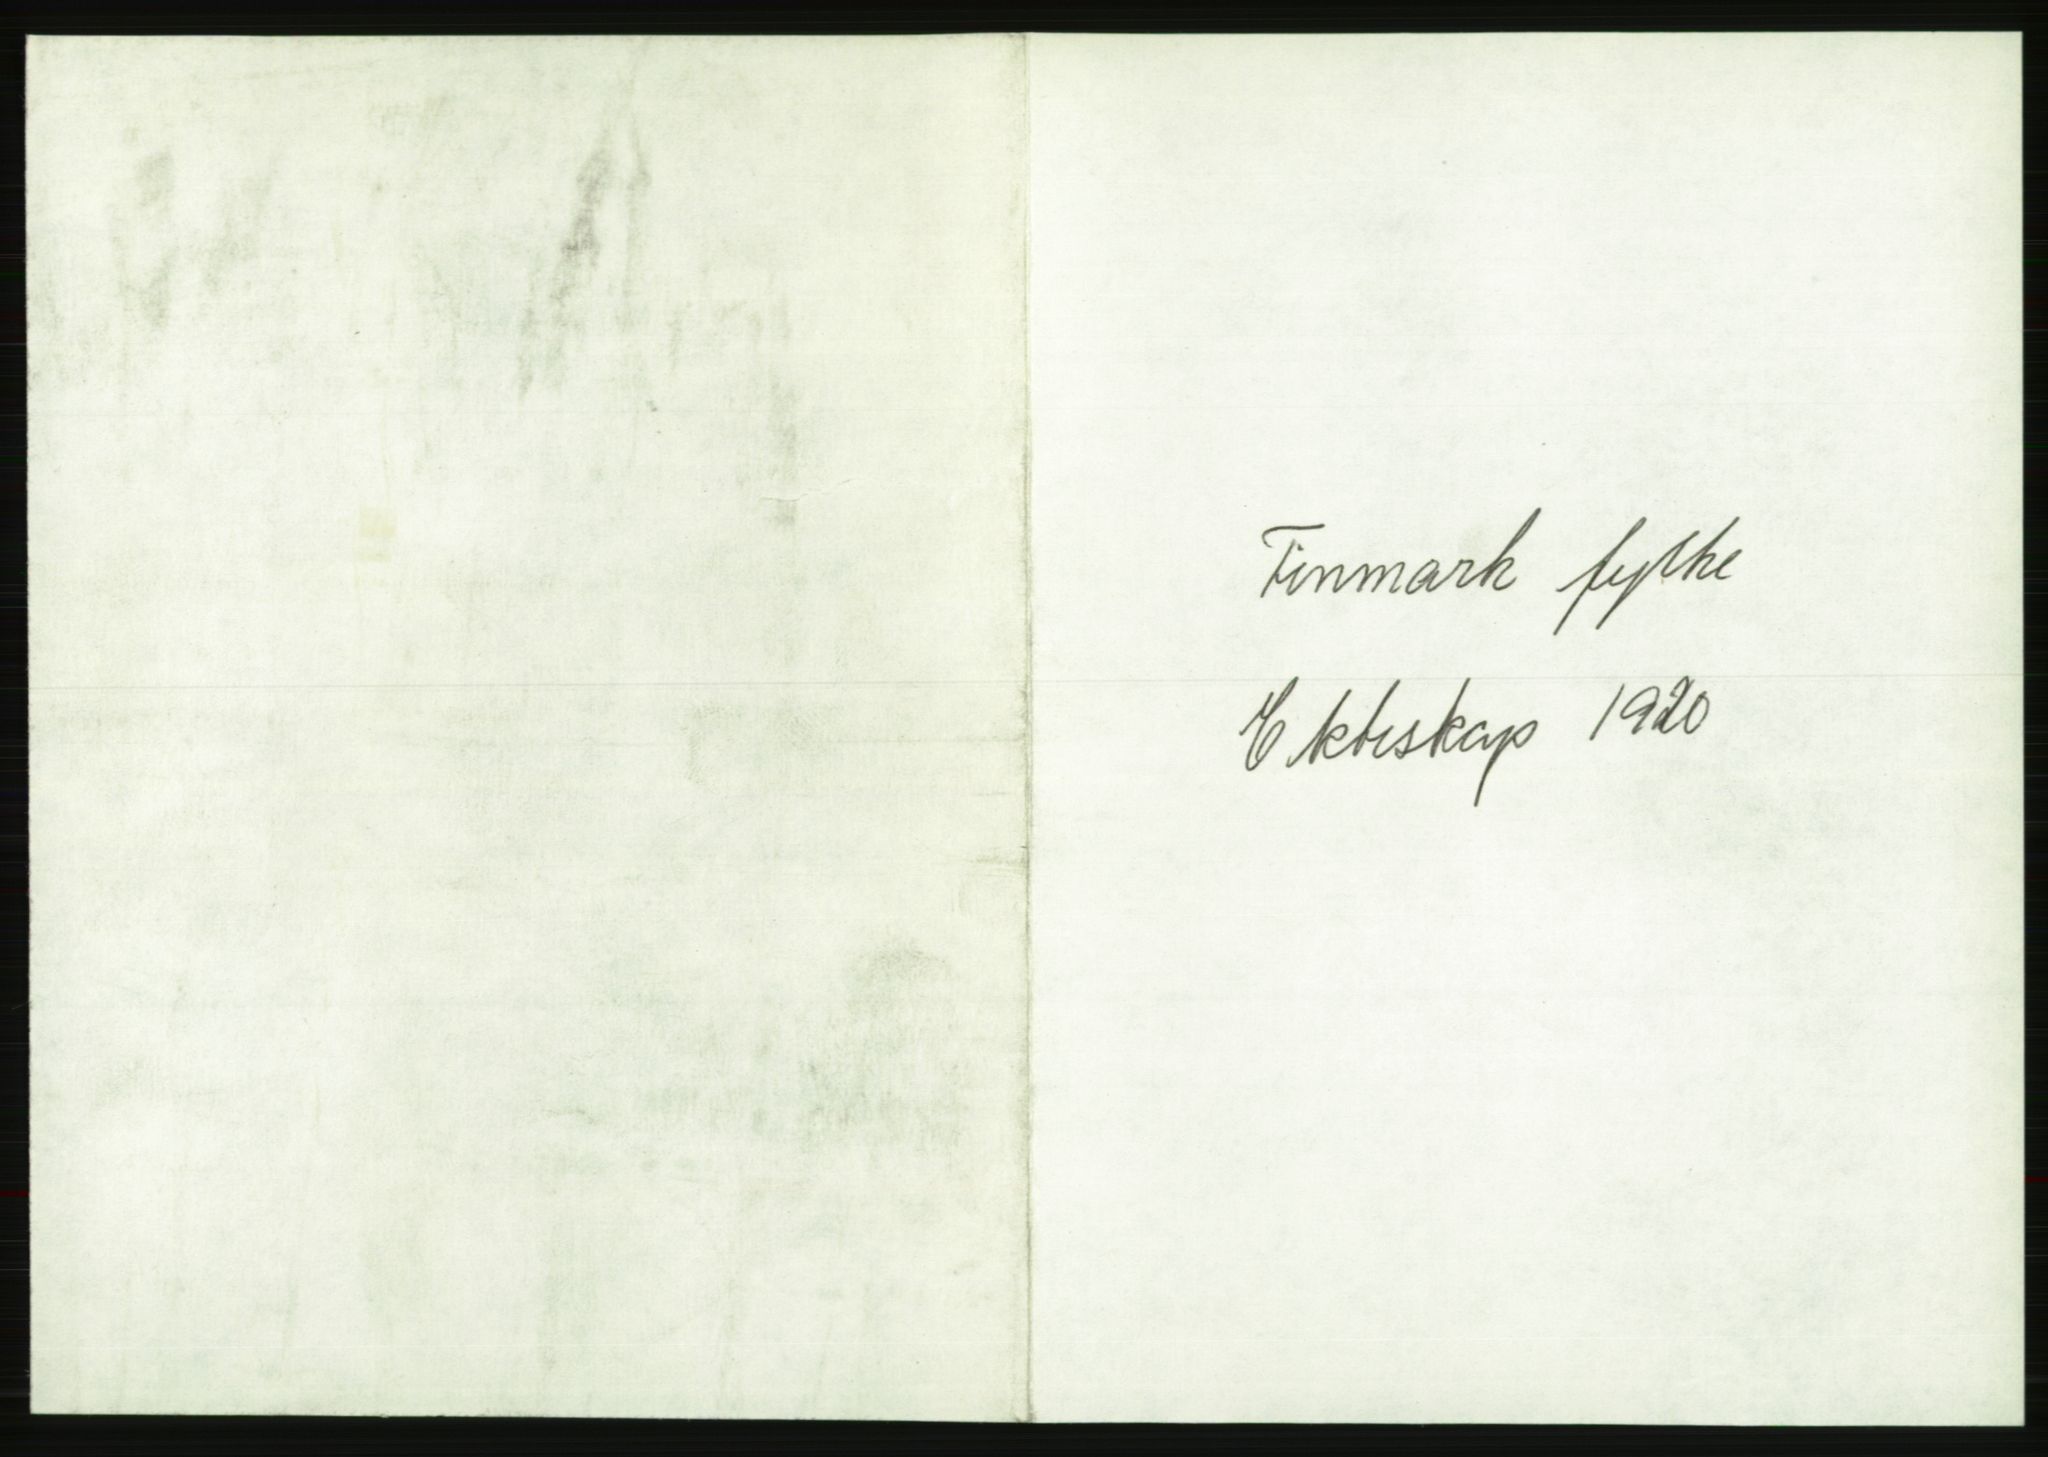 Finmark fylke
Ekteskap 1920